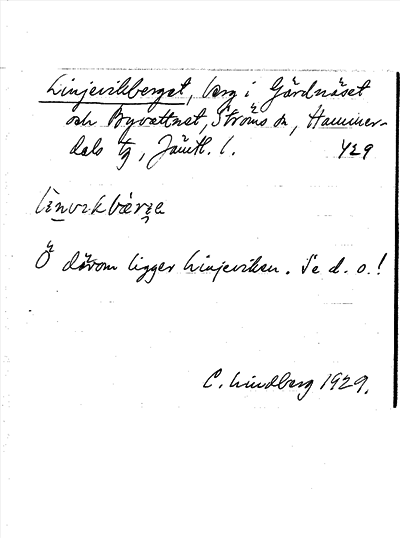 Linjevikberget, berg i Gärdnäset
och Byvattnet, Ströms sn, Hammer-
dals tg, Jämtl. l. Y29
Ö därom ligger Linjeviken. Se d. o.!
C. Lindberg 1929.